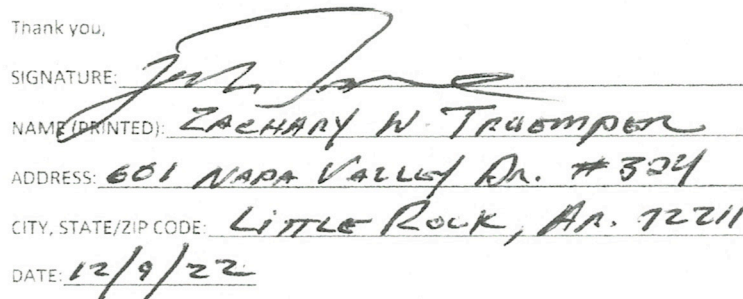 Thank you,
SIGNATURE:
NAME (PRINTED): ZACHARY W. TRUEMPER
ADDRESS: 601 NAPA VALLEY DR. #324
CITY, STATE/ZIP CODE: LITTLE ROCK, AR. 72211
DATE: 12/9/22